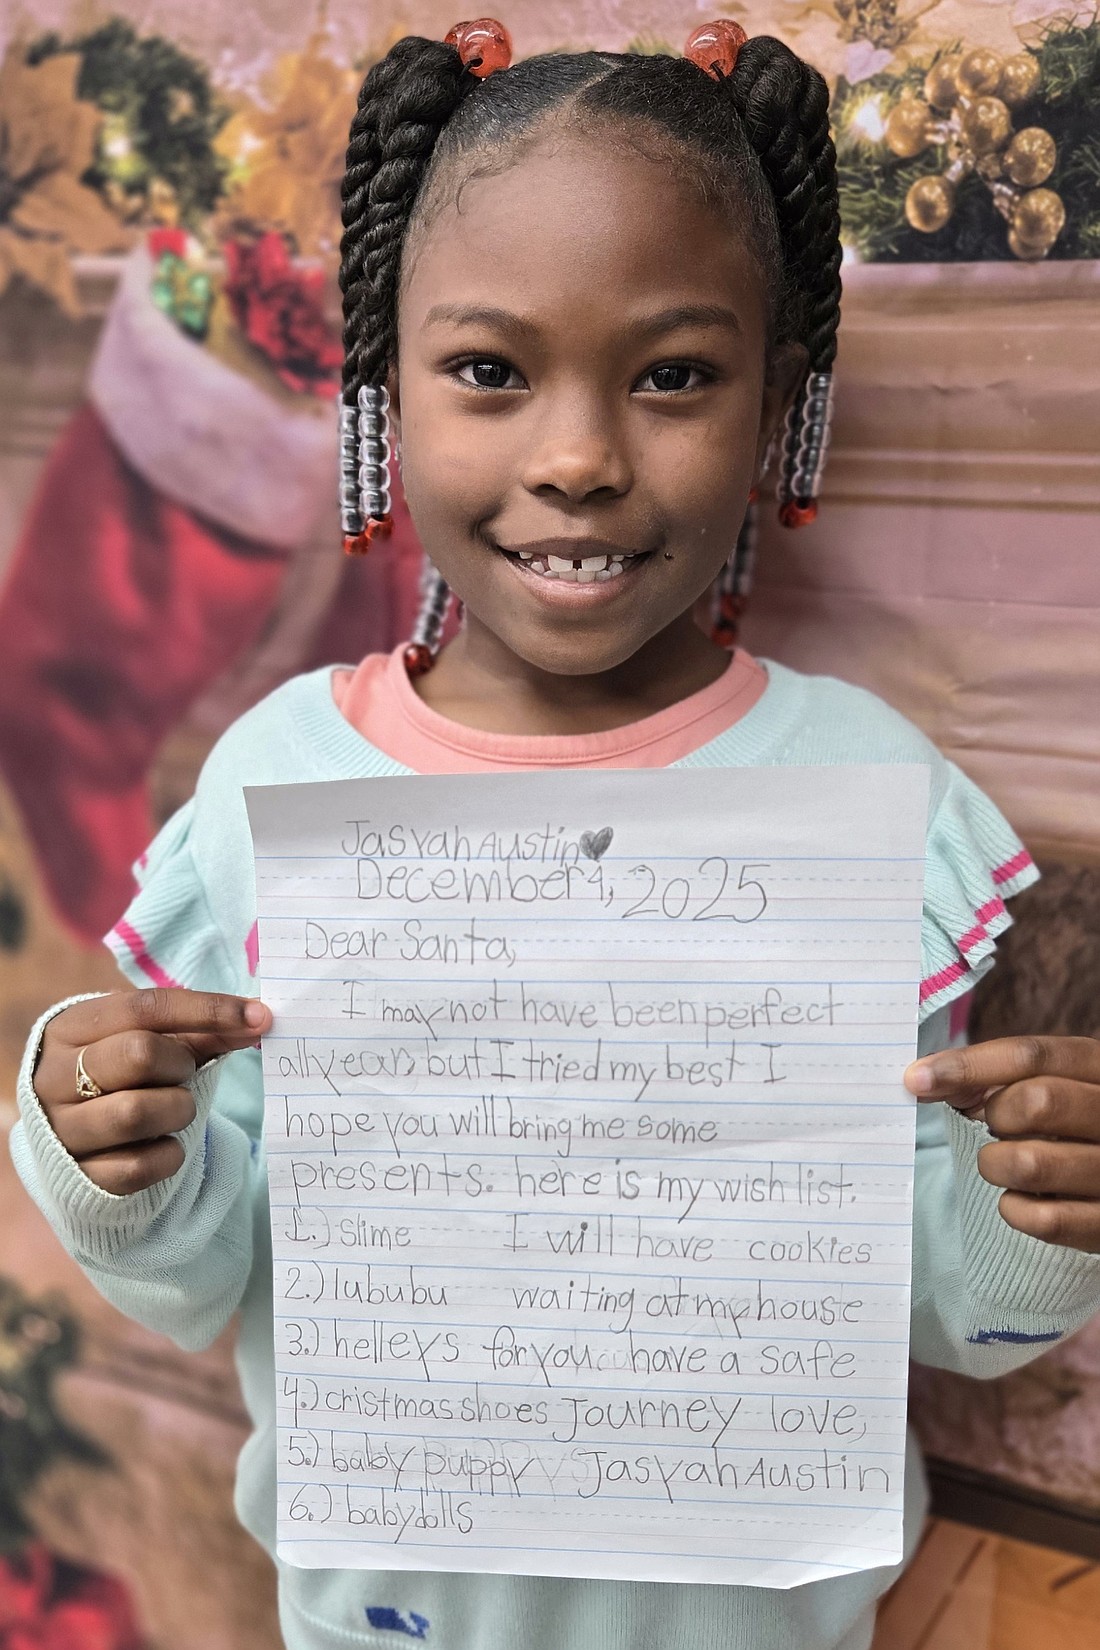 Jasyah Austin
December 4, 2025
Dear Santa,
I may not have been perfect
all year, but I tried my best I
hope you will bring me some
presents. here is my wish list.
1.) slime
2.) lububu
3.) helleys
4.) cristmas shoes
5.) baby puppy
6.) baby dolls
I will have cookies
waiting at my house
for you have a safe
Journey love,
Jasyah Austin